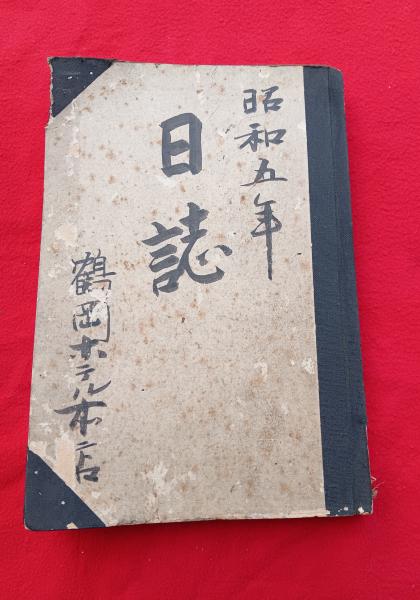 昭和五年
日誌
鶴岡ホテル本店